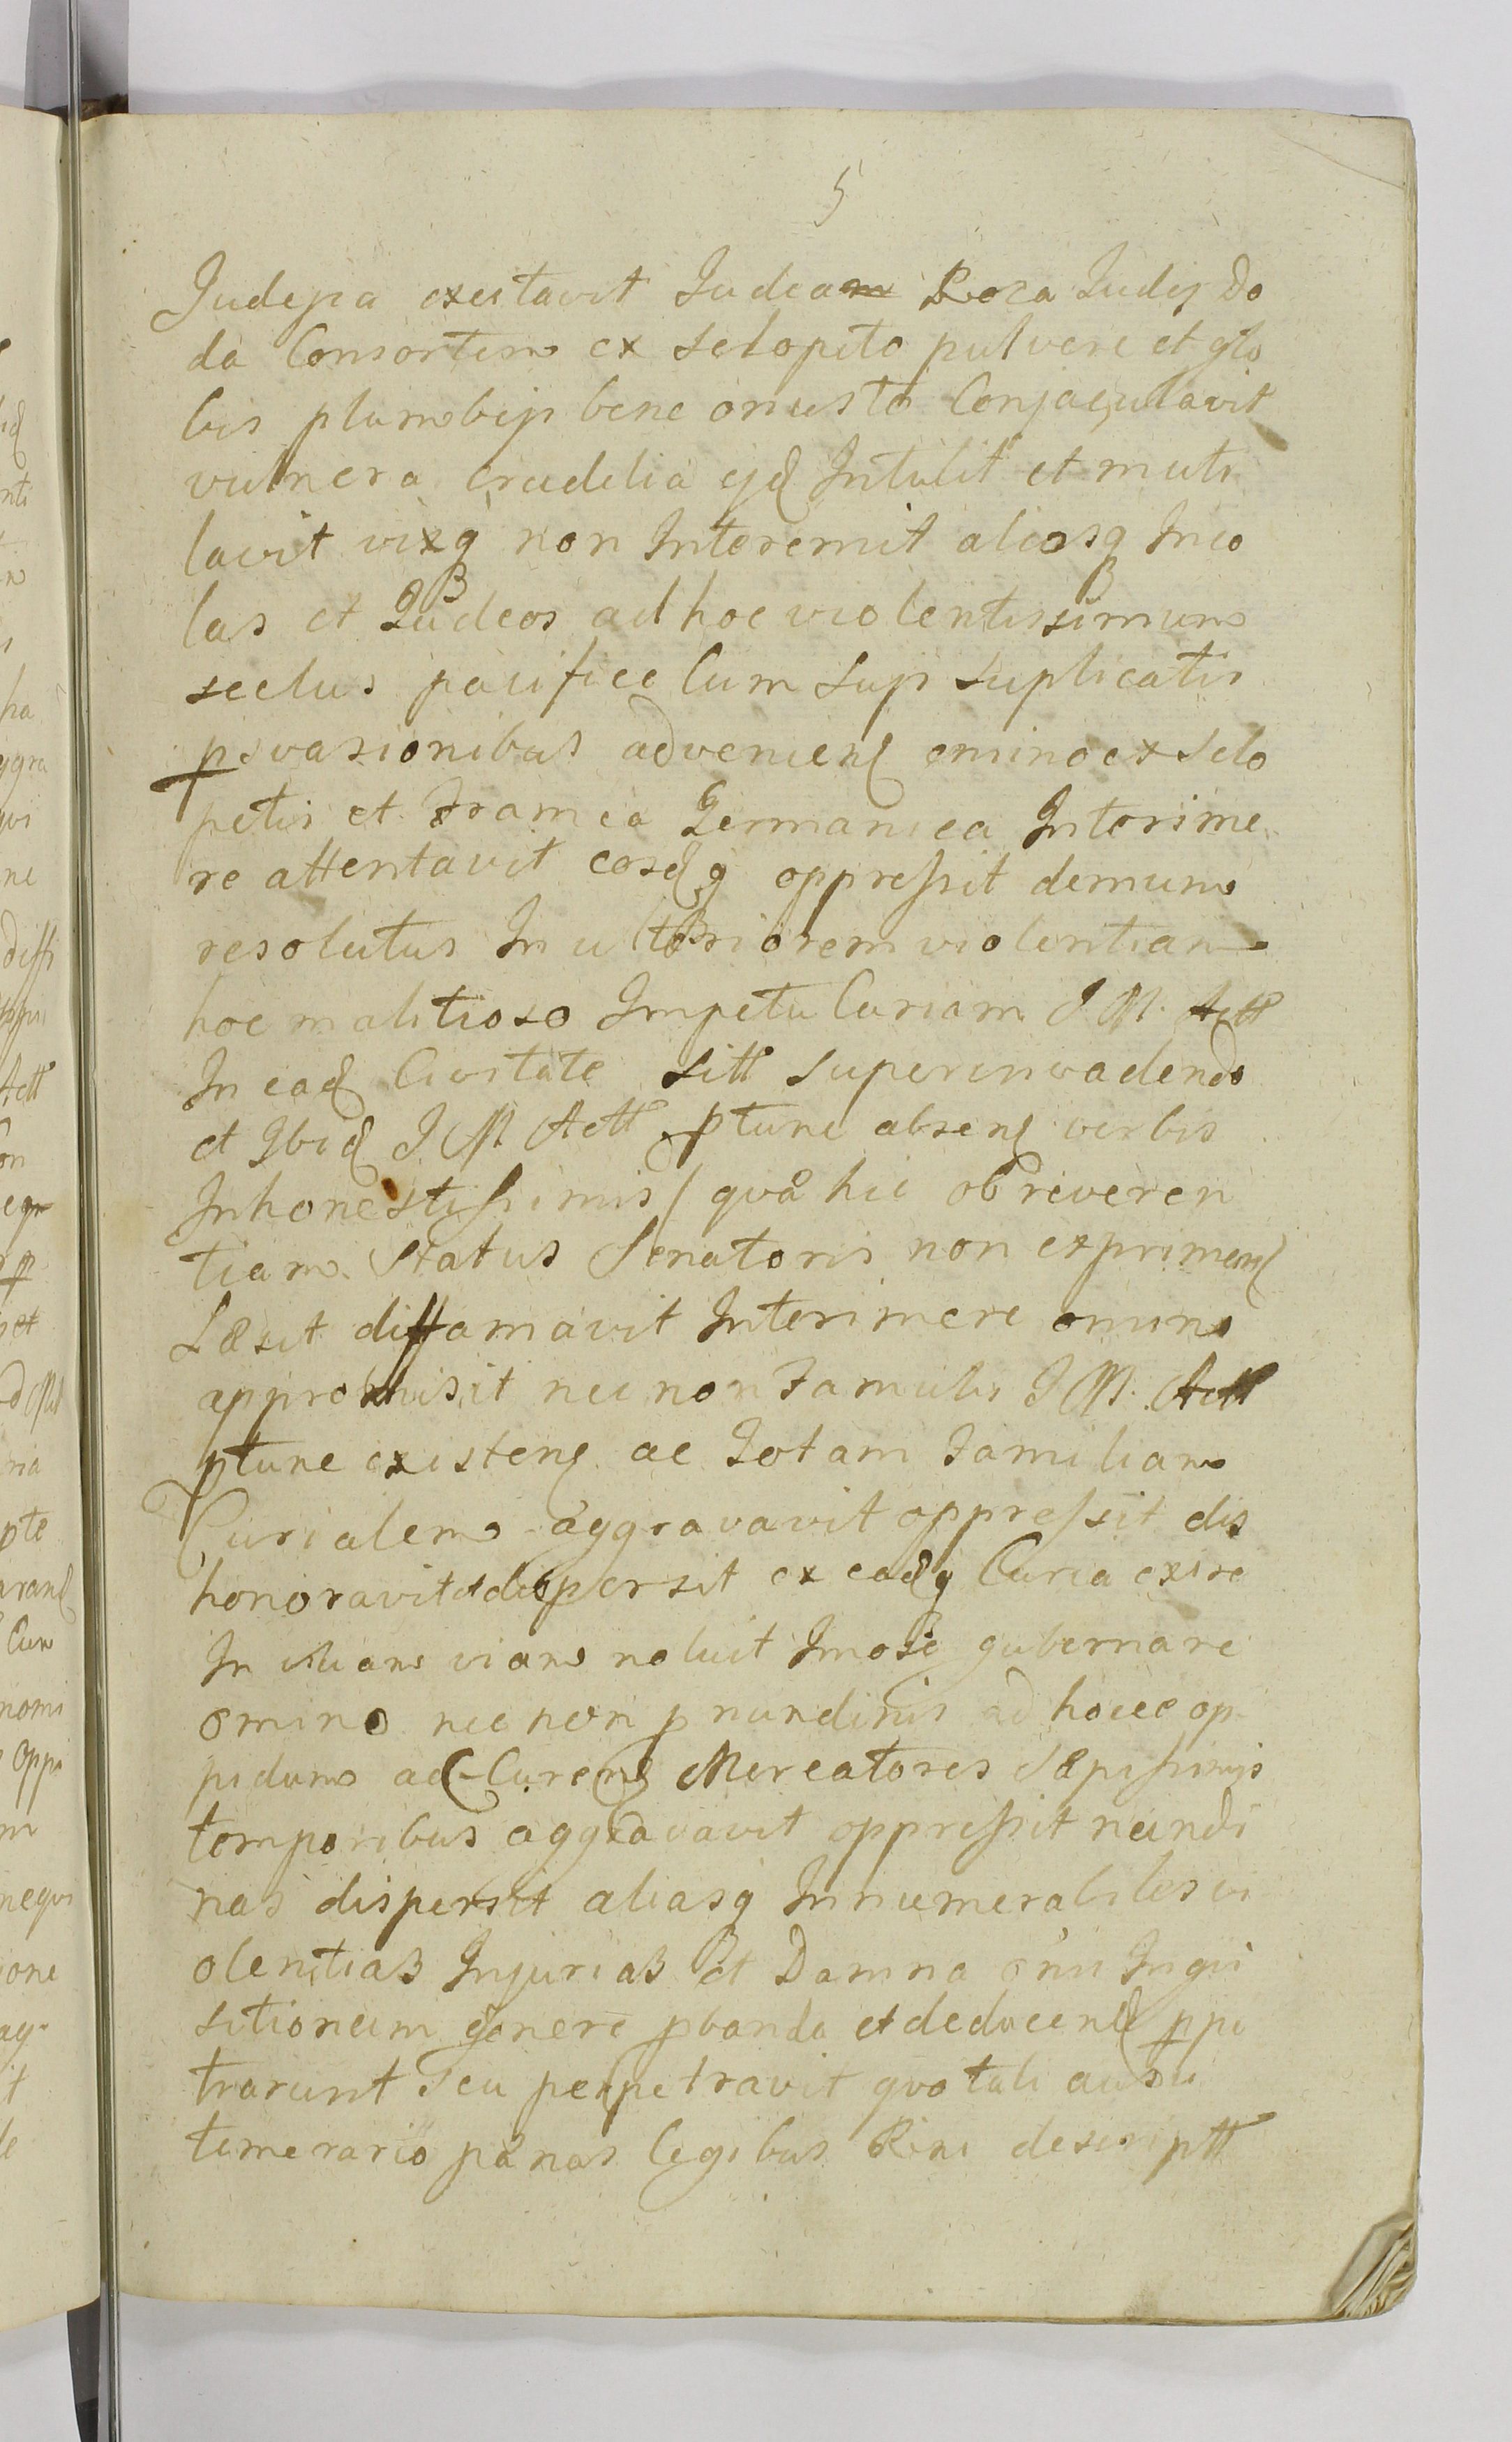 5
Judejia exeitavit Iudeam Roza Iudej Do
da Consortem ex sclopeto pulvere et glo
bis plumbeis bene onusto Conjaculavit
vulnera crudelia ejd Intulit et muti
lavit vixq non Interemit aliosq Inco
las et Judeos ad hoc violentissimum
scelus pacifice Cum Suis suplicatis
psvasionibus advenien omino ex sclo
petis et Framea Germanica Interime
re attentavit eosdq oppressit demum
resolutus In ulteriorem violentiam
hoc malitioso Impetu Curiam J M. Actt
In ead Civitate sitt superinvadendo
et Ibid J M Actt ptunc absen verbis
Inhonestissimis / qva hic ob reveren
tiam Status Senatoris non exprimen
Læsit diffamavit Interimere omino
appromisit nec non Famulis J M. Actt
ptunc existen ac Totam Familiam
Curialem aggravavit oppressit dis
honoravit et dispersit ex eadq Curia exire
In viam noluit Imo se gubernare
omino nec non p nundinis ad hocce op
pidum ad Curen Mercatores Sæpissimis
temporibus aggravavit oppressit nundi
nas dispersit aliasq Innumerabiles vi
olentias Injurias Et Damna omi Inqui
sitionum genere pbanda et deducend ppe
trarunt seu perpetravit quo tali ausu
temerario pænas legibus Rini descriptt